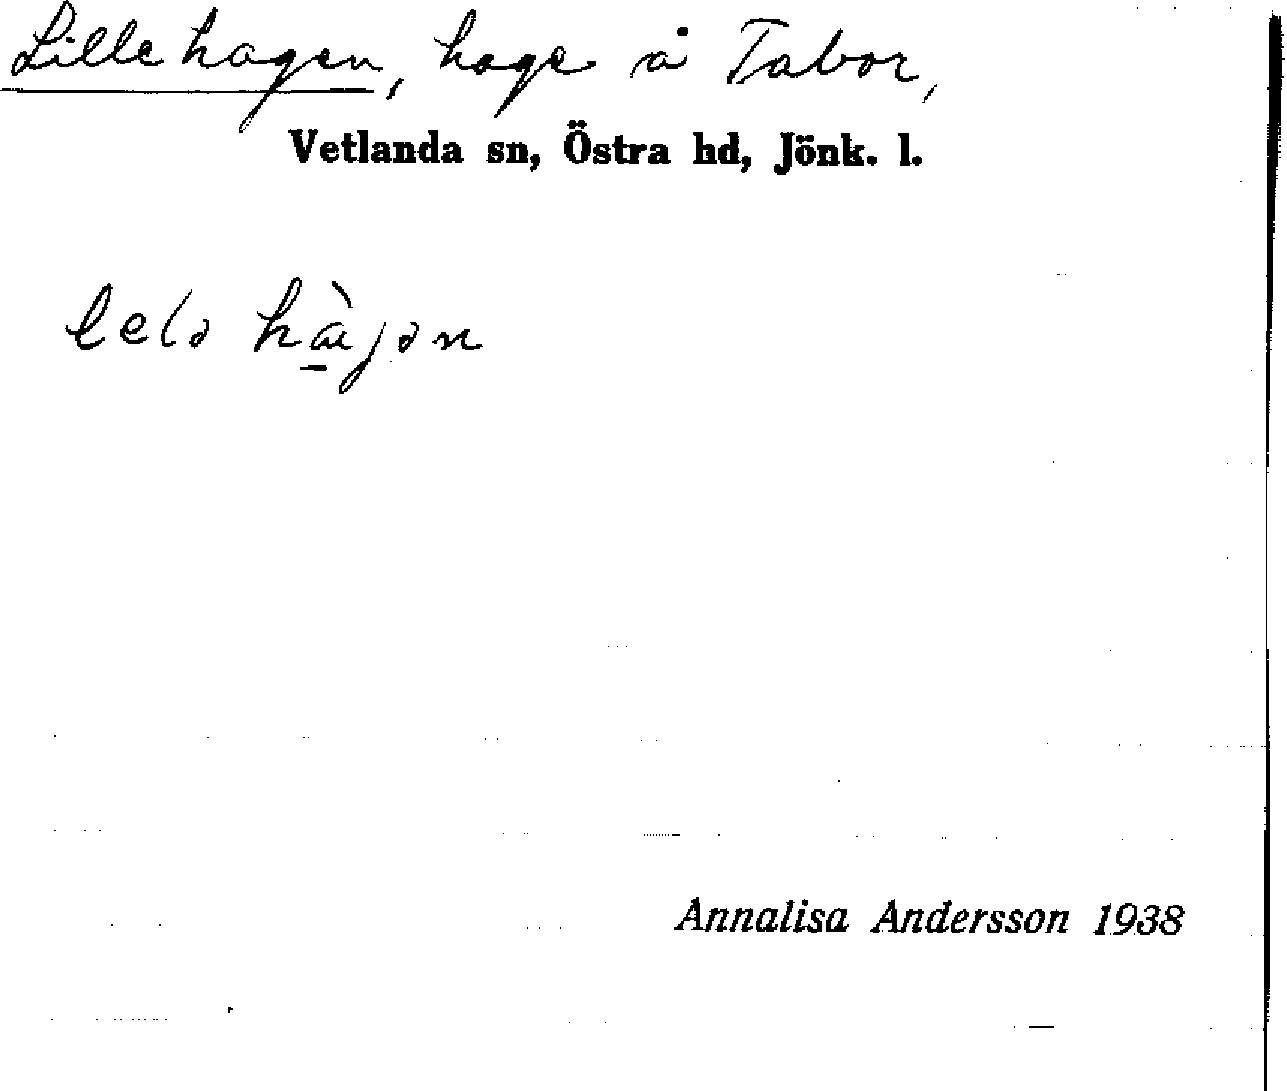 Lillehagen, hage å Tabor,
Vetlanda sn, Östra hd, Jönk. l.
Annalisa Andersson 1938